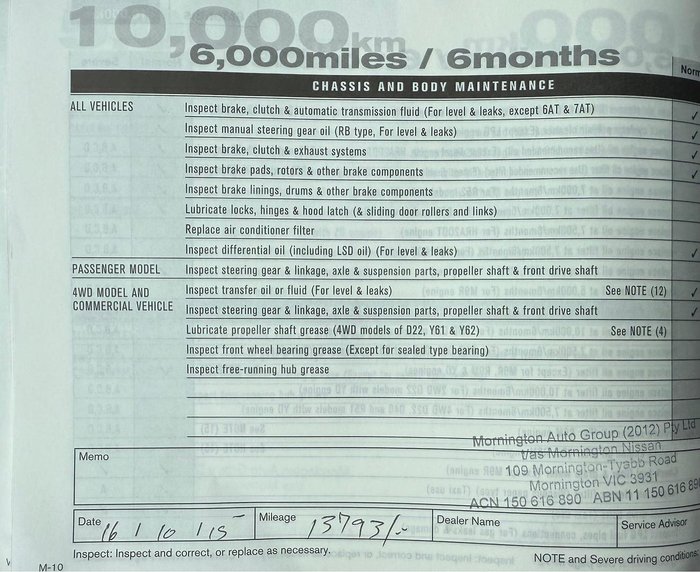 10,000km
6,000miles / 6months
CHASSIS AND BODY MAINTENANCE
ALL VEHICLES
Inspect brake, clutch & automatic transmission fluid (For level & leaks, except 6AT & 7AT) ✓
Inspect manual steering gear oil (RB type, For level & leaks)
Inspect brake, clutch & exhaust systems ✓
Inspect brake pads, rotors & other brake components ✓
Inspect brake linings, drums & other brake components
Lubricate locks, hinges & hood latch (& sliding door rollers and links)
Replace air conditioner filter
Inspect differential oil (including LSD oil) (For level & leaks) ✓
PASSENGER MODEL Inspect steering gear & linkage, axle & suspension parts, propeller shaft & front drive shaft
4WD MODEL AND
COMMERCIAL VEHICLE
Inspect transfer oil or fluid (For level & leaks) See NOTE (12) ✓
Inspect steering gear & linkage, axle & suspension parts, propeller shaft & front drive shaft ✓
Lubricate propeller shaft grease (4WD models of D22, Y61 & Y62) See NOTE (4)
Inspect front wheel bearing grease (Except for sealed type bearing)
Inspect free-running hub grease
Memo
Mornington Auto Group (2012) Pty Ltd
t/as Mornington Nissan
109 Mornington-Tyabb Road
Mornington VIC 3931
ACN 150 616 890 ABN 11 150 616 890
Date 16 / 10 / 15
Mileage 13793/-
Dealer Name
Service Advisor
Inspect: Inspect and correct, or replace as necessary.
NOTE and Severe driving conditions
M-10